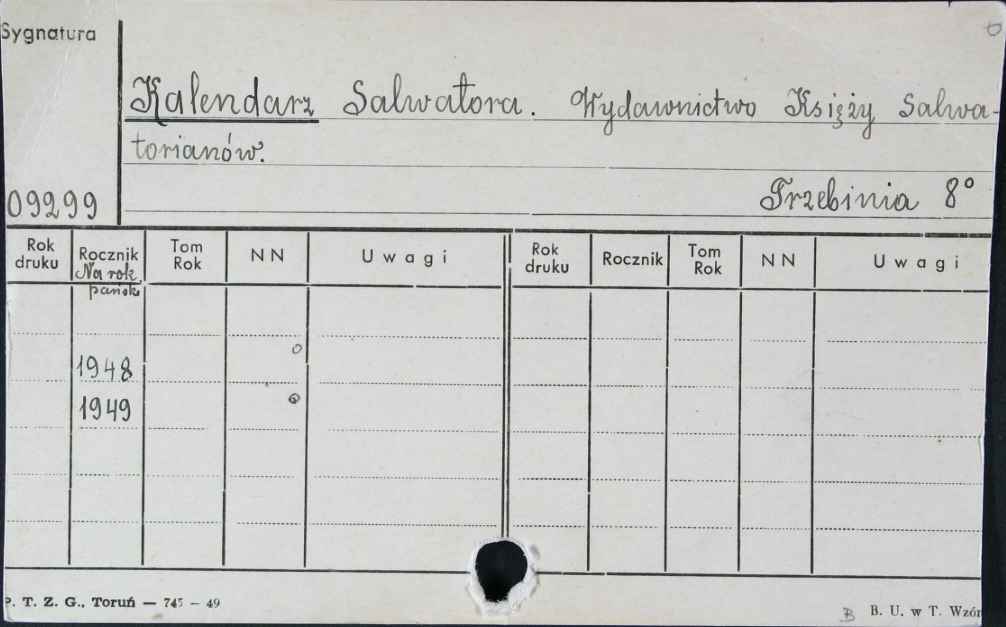 Sygnatura
Kalendarz Salwatora. Wydawnictwo Księży Salwa-
torianów.
09299
Trzebinia 8°
Rok druku Rocznik Tom Rok NN Uwagi Rok druku Rocznik Tom Rok NN Uwagi
Na rok
pański
1948
1949
P. T. Z. G., Toruń — 745 - 49
B
B. U. w T. Wzór